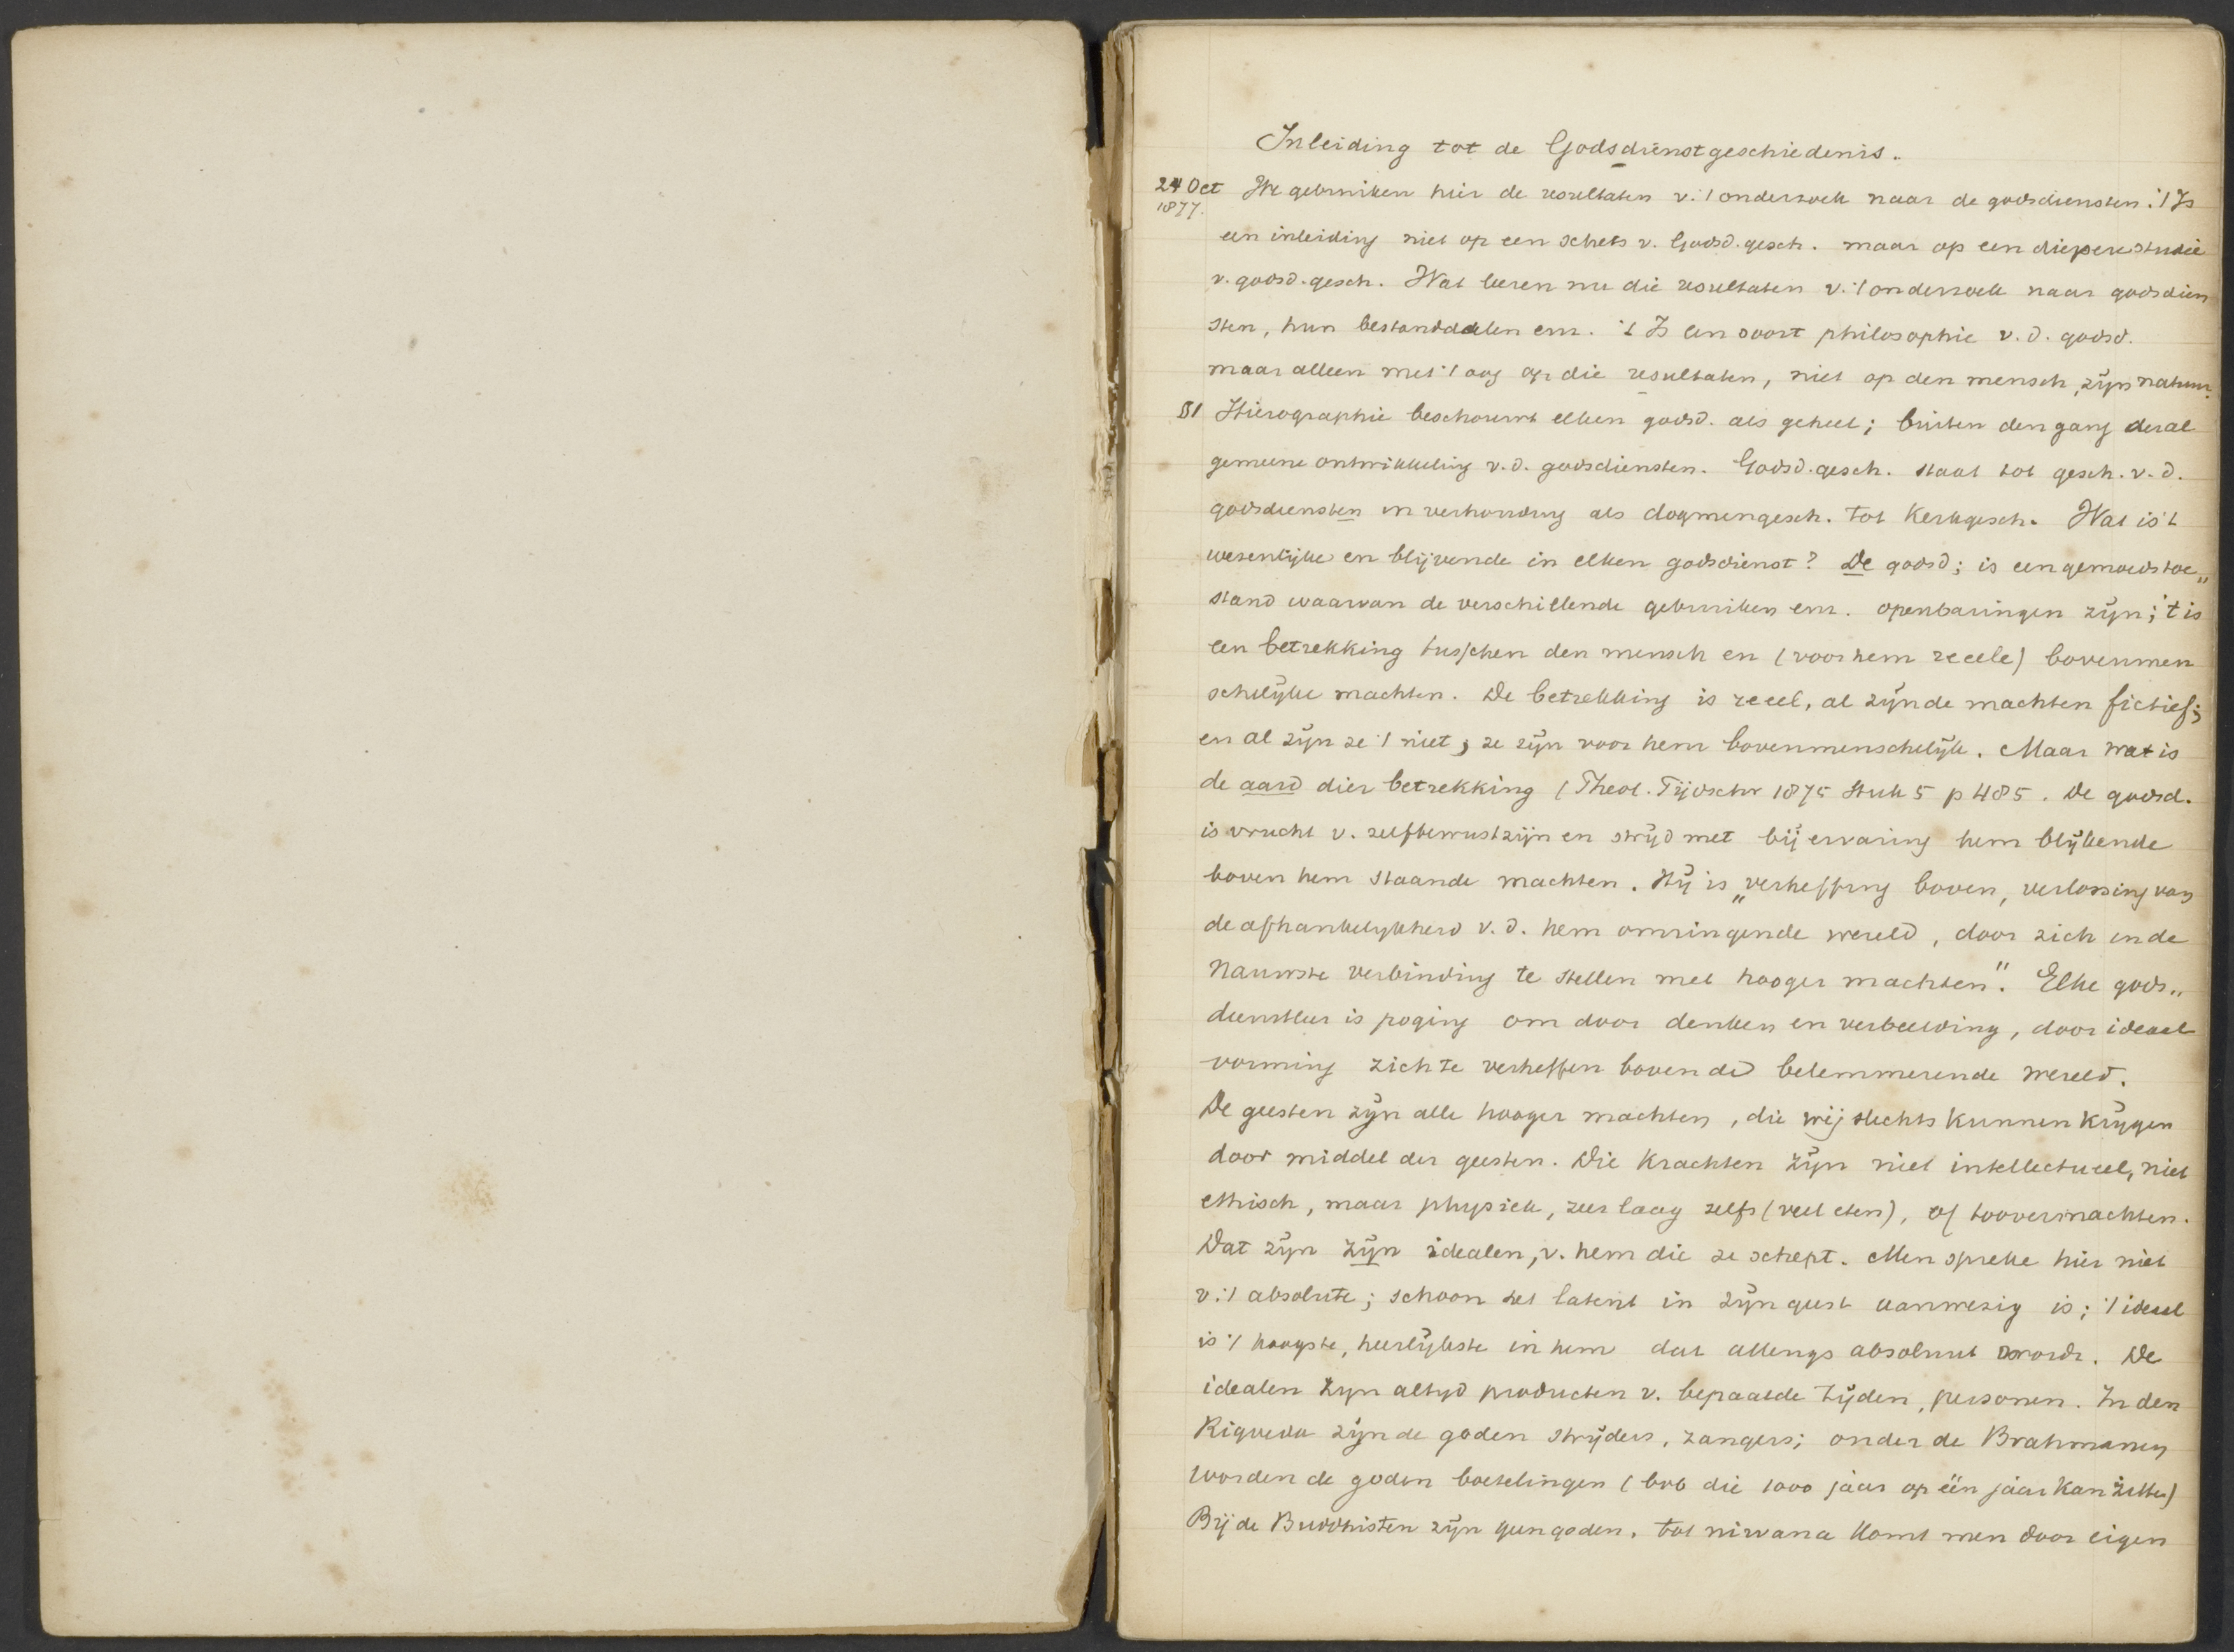 Inleiding tot de Godsdienstgeschiedenis.
24 Oct We gebruiken hier de resultaten v. 't onderzoek naar de godsdiensten. 't Is
1877.
een inleiding niet op een schets v. Godsd. gesch. maar op een diepere studie
v. godsd. gesch. Wat leeren nu die resultaten v. 't onderzoek naar godsdien
sten, hun bestanddeelen enz. 't Is een soort philosophie v. d. godsd.
maar alleen met 't oog op die resultaten, niet op den mensch, zijn natuur.
§1 Hierographie beschouwt elken godsd. als geheel; buiten den gang der al
gemeene ontwikkeling v. d. godsdiensten. Godsd. gesch. staat tot gesch. v. d.
godsdiensten in verhouding als dogmengesch. tot Kerkgesch. Wat is 't
wesenlijke en blijvende in elken godsdienst? De godsd; is een gemoedstoe„
stand waarvan de verschillende gebruiken enz. openbaringen zijn; 't is
een betrekking tusschen den mensch en (voor hem reeele) bovenmen
schelijke machten. De betrekking is reeel, al zijn de machten fictief;
en al zijn ze 't niet, ze zijn voor hem bovenmenschelijk. Maar wat is
de aard dier betrekking (Theol. Tijdschr 1875 Stuk 5 p 485. De godsd.
is vrucht v. zelfbewustzijn en strijd met bij ervaring hem blijkende
boven hem staande machten. Hij is „verheffing boven, verlossing van
de afhankelijkheid v. d. hem omringende wereld, door zich in de
nauwste verbinding te stellen met hooger machten". Elke gods„
dienstleer is poging om door denken en verbeelding, door ideaal
vorming zich te verheffen boven de belemmerende wereld.
De geesten zijn alle hooger machten, die wij slechts kunnen krijgen
door middel der geesten. Die krachten zijn niet intellectueel, niet
ethisch, maar physiek, zeer laag zelfs (veel eten), of toovermachten.
Dat zijn zijn idealen, v. hem die ze schept. Men spreke hier niet
v. 't absolute; schoon het latent in zijn geest aanwezig is; 't ideaal
is 't hoogste, heerlijkste in hem dat allengs absoluut wordt. De
idealen zijn altijd producten v. bepaalde tijden, personen. In den
Rigveda zijn de goden strijders, zangers; onder de Brahmanen
worden de goden boetelingen (bvb die 1000 jaar op één jaar kan zitten)
Bij de Buddhisten zijn geen goden. tot nirvana komt men door eigen